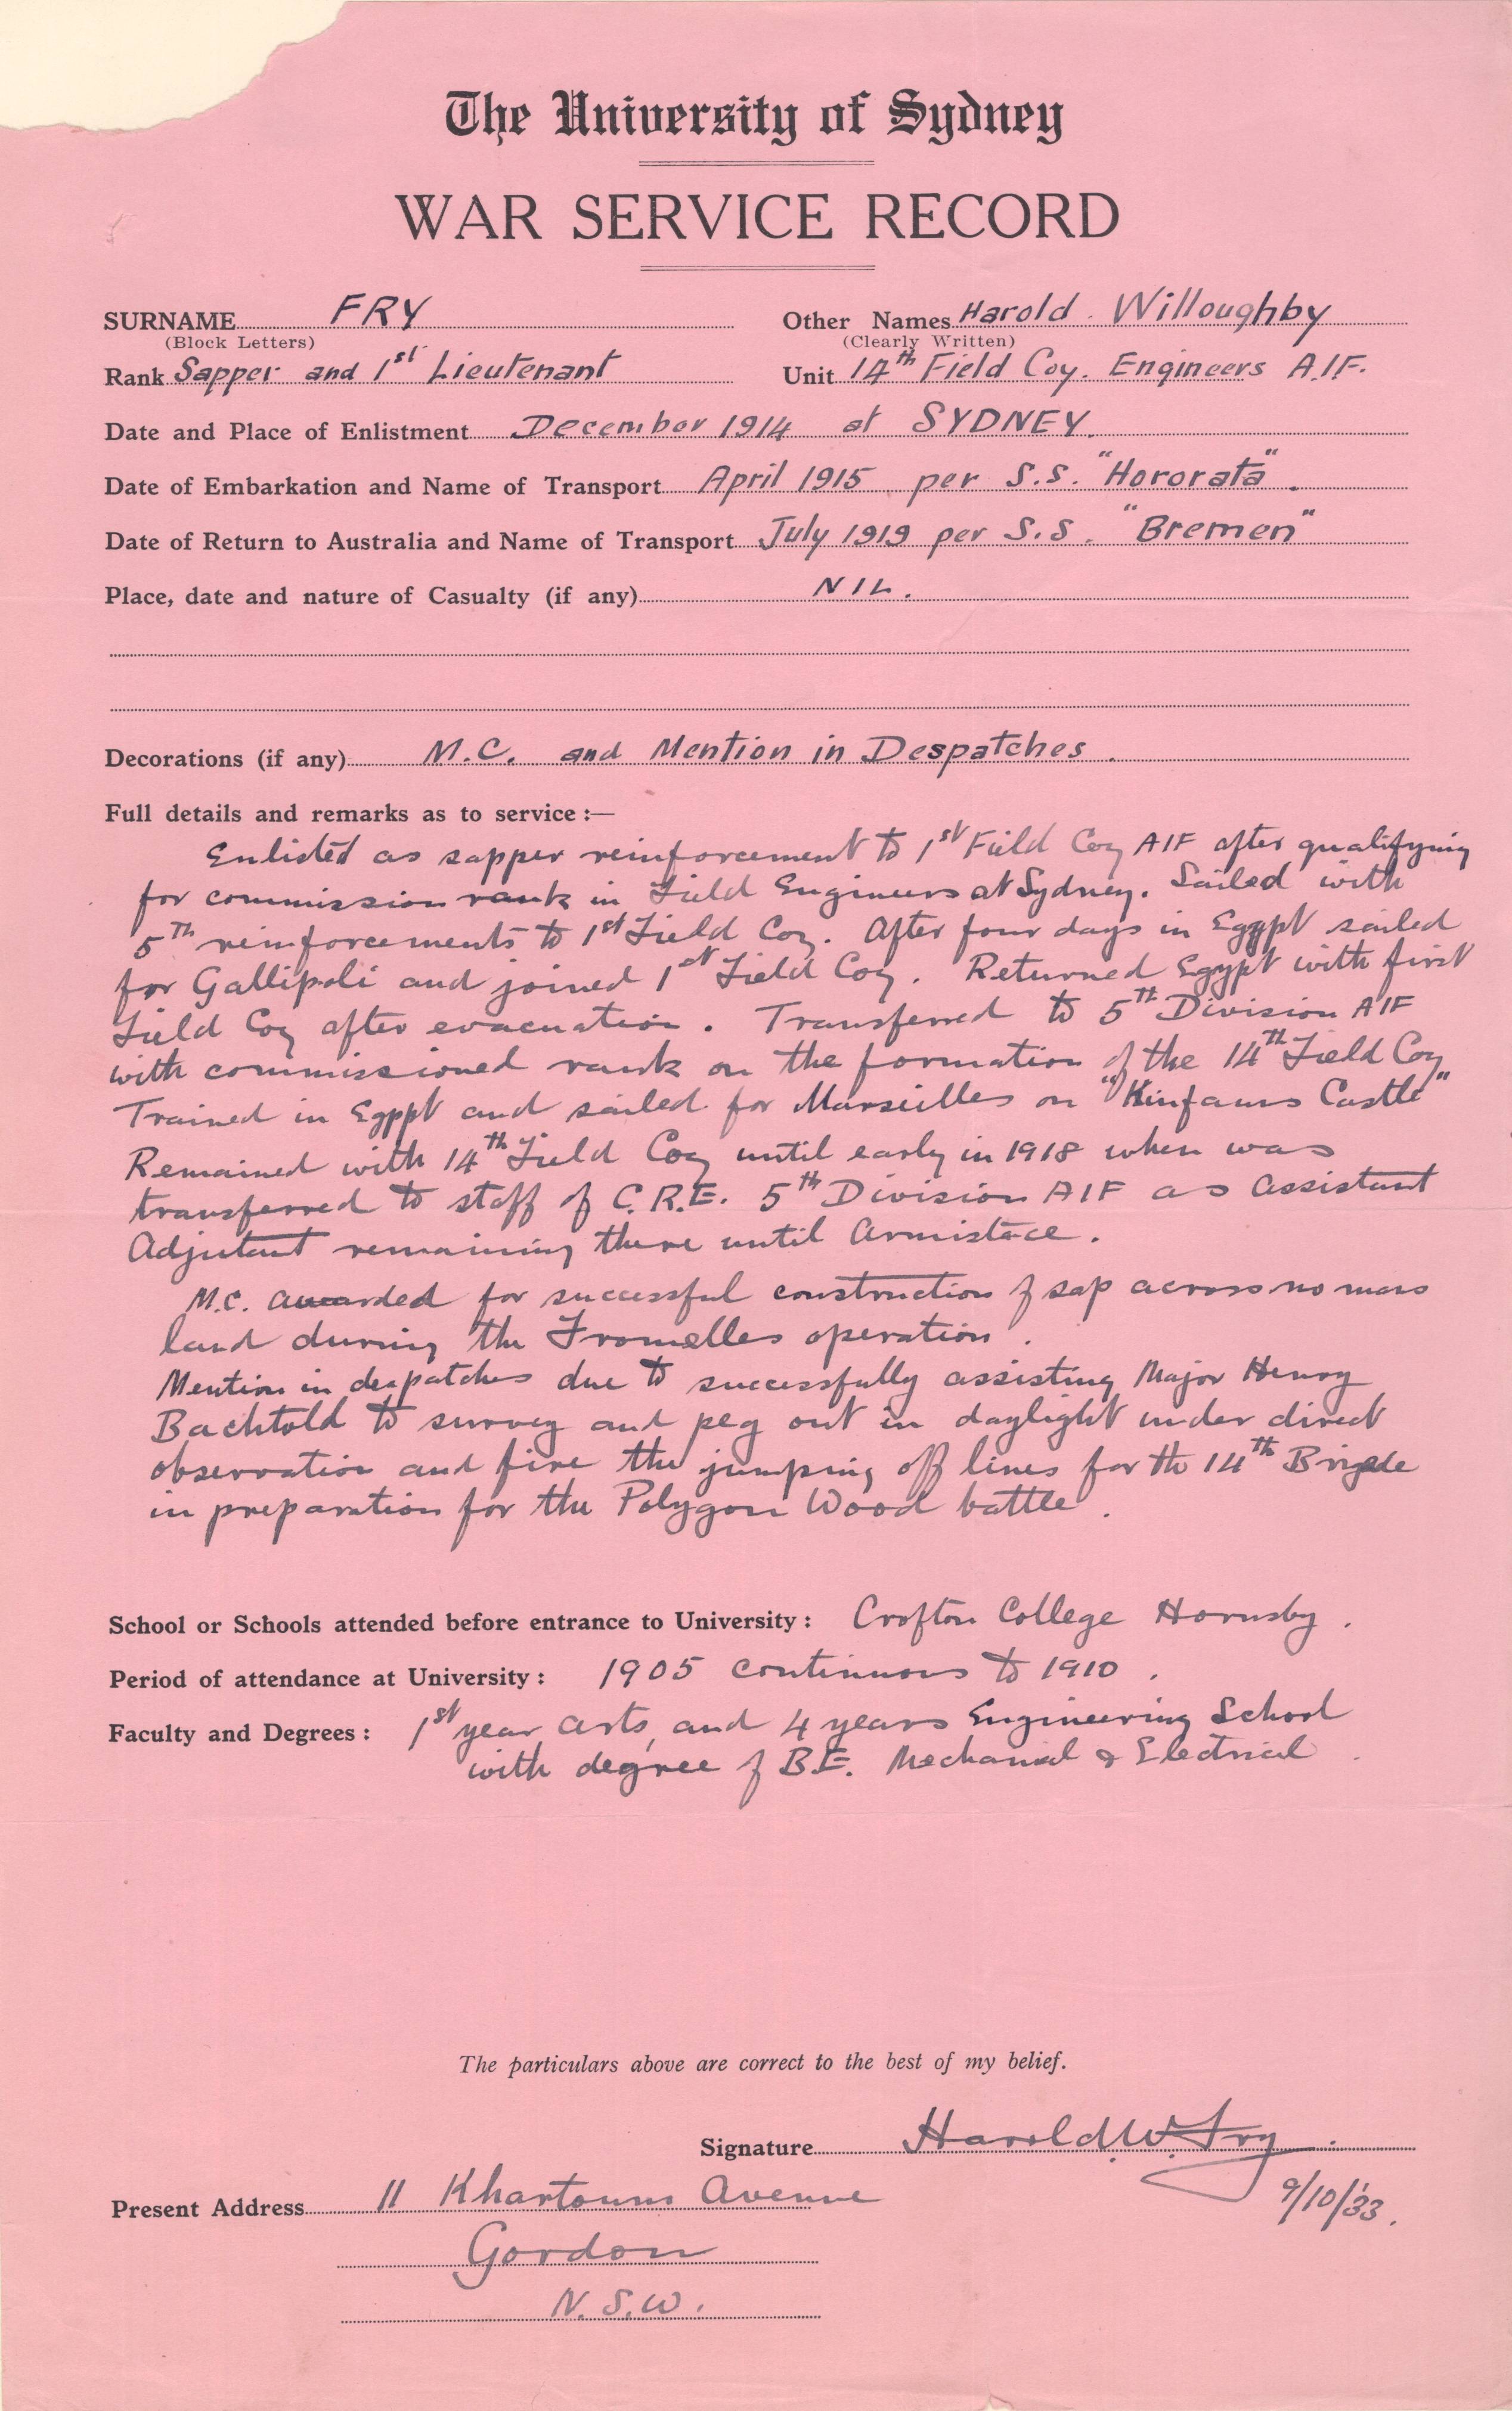 The University of Sydney
WAR SERVICE RECORD
SURNAME FRY Other Names Harold Willoughby
(Block Letters) (Clearly Written)
Rank Sapper and 1st Lieutenant Unit 14th Field Coy. Engineers A.I.F.
Date and Place of Enlistment December 1914 at SYDNEY.
Date of Embarkation and Name of Transport April 1915 per S.S. "Hororata".
Date of Return to Australia and Name of Transport July 1919 per S.S. "Bremen"
Place, date and nature of Casualty (if any) NIL.
Decorations (if any) M.C. and Mention in Despatches.
Full details and remarks as to service :—
Enlisted as sapper reinforcement to 1st Field Coy AIF after qualifying
for commission rank in Field Engineers at Sydney. Sailed with
5TH reinforcements to 1st Field Coy. After four days in Egypt sailed
for Gallipoli and joined 1st Field Coy. Returned Egypt with first
Field Coy after evacuation. Transferred to 5TH Division AIF
with commissioned rank on the formation of the 14TH Field Coy
Trained in Egypt and sailed for Marseilles on "Kinfauns Castle"
Remained with 14th Field Coy until early in 1918 when was
transferred to staff of C.R.E. 5th Division AIF as assistant
Adjutant remaining there until Armistace.
M.C. awarded for successful construction of sap across no mans
land during the Fromelles operation.
Mention in despatches due to successfully assisting Major Henry
Bachtold to survey and peg out in daylight under direct
observation and fire the jumping off lines for th 14th Brigade
in preparation for the Polygon Wood battle.
School or Schools attended before entrance to University : Crofton College Hornsby.
Period of attendance at University : 1905 continuous to 1910.
Faculty and Degrees : 1st year Arts, and 4 years Engineering School
with degree of B.E. Mechanical & Electrical
The particulars above are correct to the best of my belief.
Signature Harold W. Fry.
Present Address 11 Khartoum Avenue 9/10/33.
Gordon
N.S.W.